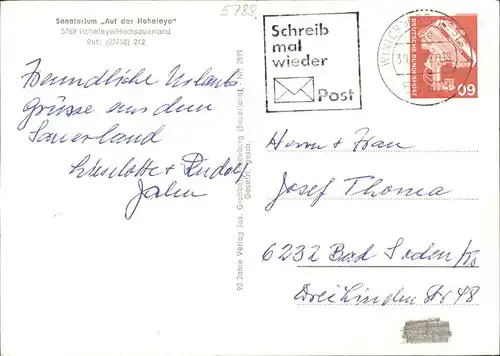 Sanatorium „Auf der Hoheleye"
5789 Hoheleye/Hochsauerland
Ruf: (02758) 212
5789
Freundliche Urlaubs
Grüsse aus dem
Sauerland
Lieselotte + Rudolf
Jahn
90 Jahre Verlag Jos. Grobbel, Fredeburg (Sauerland)
Gesetzl. gesch.
Schreib
mal
wieder
Post
DEUTSCHE BUNDESPOST
60
Herrn + Frau
Josef Thoma
6232 Bad Soden/Ts
Dreilinden Str 48